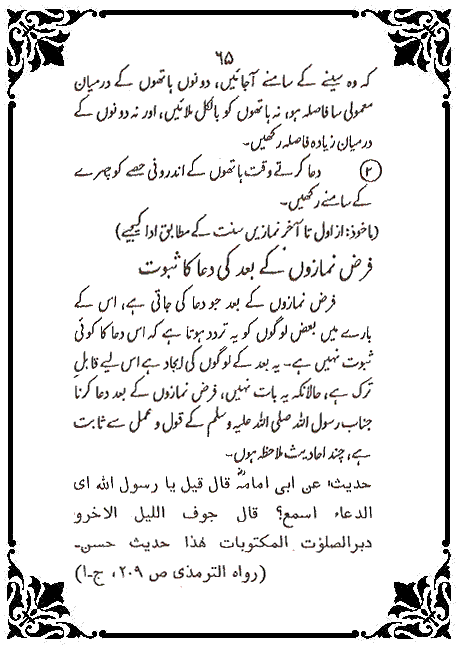 ۶۵
کہ وہ سینے کے سامنے آجائیں، دونوں ہاتھوں کے درمیان
معمولی سا فاصلہ ہو، نہ ہاتھوں کو بالکل ملائیں، اور نہ دونوں کے
درمیان زیادہ فاصلہ رکھیں۔
۲ دعا کرتے وقت ہاتھوں کے اندرونی حصے کو چہرے
کے سامنے رکھیں۔
(ماخوذ: از اول تا آخر نمازیں سنت کے مطابق ادا کیجیے)
فرض نمازوں کے بعد کی دعا کا ثبوت
فرض نمازوں کے بعد جو دعا کی جاتی ہے، اس کے
بارے میں بعض لوگوں کو یہ تردد ہوتا ہے کہ اس دعا کا کوئی
ثبوت نہیں ہے۔ یہ بعد کے لوگوں کی ایجاد ہے اس لیے قابلِ
ترک ہے، حالانکہ یہ بات نہیں، فرض نمازوں کے بعد دعا کرنا
جناب رسول اللہ صلی اللہ علیہ وسلم کے قول و عمل سے ثابت
ہے، چند احادیث ملاحظہ ہوں۔
حدیث۱ عن ابی امامۃؓ قال قیل یا رسول اللہ ای
الدعاء اسمع؟ قال جوف اللیل الاخرو
دبرالصلوٰت المکتوبات ھٰذا حدیث حسن۔
(رواہ الترمذی ص ۲۰۹، ج۔۱)